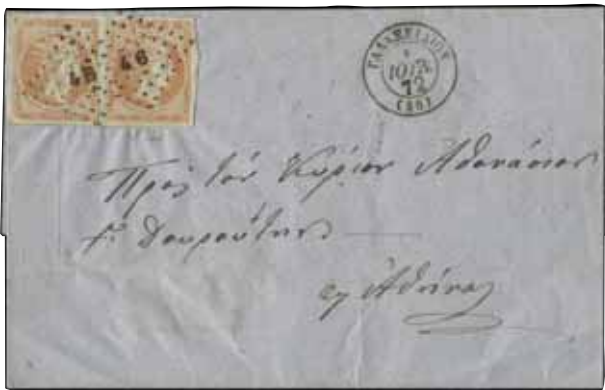 46 46
ΓΑΛΑΞΕΙΔΙΟΝ
72
(46)
Πρὸς τὸν Κύριον Ἀθανάσιον
Γ. Δουρούτην
εἰς Ἀθήνας